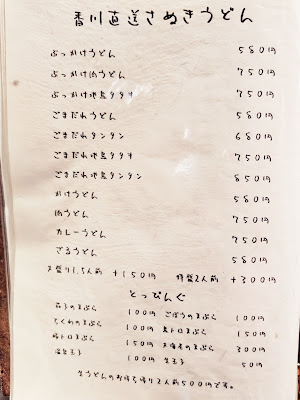 香川直送さぬきうどん
ぶっかけうどん 580円
ぶっかけ肉うどん 750円
ぶっかけ地鳥タタキ 750円
ごまだれうどん 580円
ごまだれタンタン 680円
ごまだれ地鳥タタキ 750円
ごまだれ地鳥タンタン 850円
かけうどん 580円
肉うどん 750円
カレーうどん 750円
ざるうどん 580円
大盛り1.5人前 +150円 特盛2人前 +300円
とっぴんぐ
茄子の天ぷら 100円 ごぼうの天ぷら 100円
ちくわの天ぷら 100円 鳥トロ天ぷら 150円
豚トロ天ぷら 150円 大海老の天ぷら 300円
温泉玉子 100円 生玉子 50円
生うどんのお持ち帰り2人前500円です。